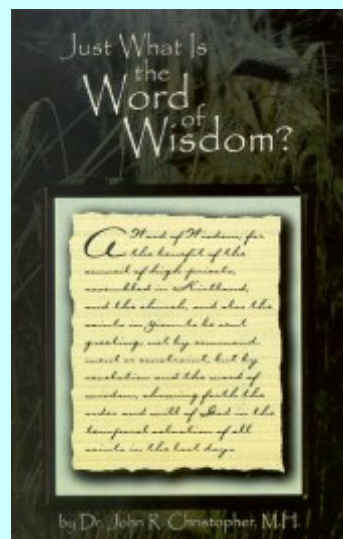 Just What Is
the
Word
of
Wisdom?
A Word of Wisdom, for
the benefit of the
council of high priests,
assembled in Kirtland,
and the church, and also the
saints in Zion to be sent
greeting, not by command
ment or constraint, but by
revelation and the word of
wisdom, showing forth the
order and will of God in the
temporal salvation of all
saints in the last days
by Dr. John R. Christopher, M.H.